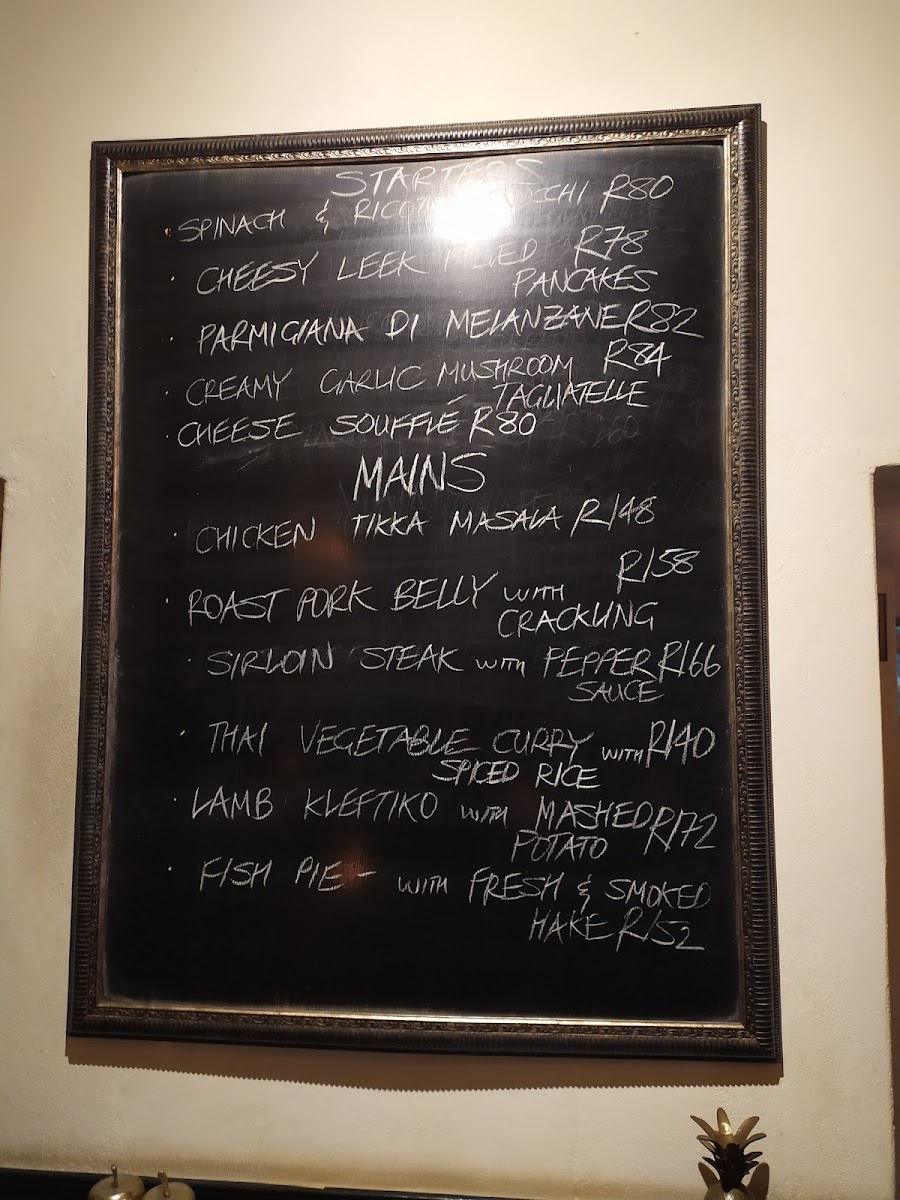 STARTERS
SPINACH & RICOTTA GNOCCHI R80
CHEESY LEEK FILLED R78
PANCAKES
PARMIGIANA DI MELANZANE R82
CREAMY GARLIC MUSHROOM R84
TAGLIATELLE
CHEESE SOUFFLÉ R80
MAINS
CHICKEN TIKKA MASALA R148
ROAST PORK BELLY WITH R158
CRACKLING
SIRLOIN STEAK WITH PEPPER R166
SAUCE
THAI VEGETABLE CURRY WITH R140
SPICED RICE
LAMB KLEFTIKO WITH MASHED R172
POTATO
FISH PIE - WITH FRESH & SMOKED
HAKE R152